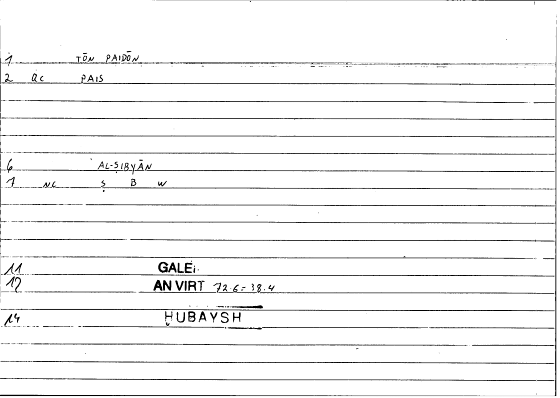 1 TŌN PAIDŌN
2 QC PAIS
6 AL-ṢIBYĀN
7 NC Ṣ B W
11 GALEN
12 AN VIRT 72.6=38.4
14 ḤUBAYSH